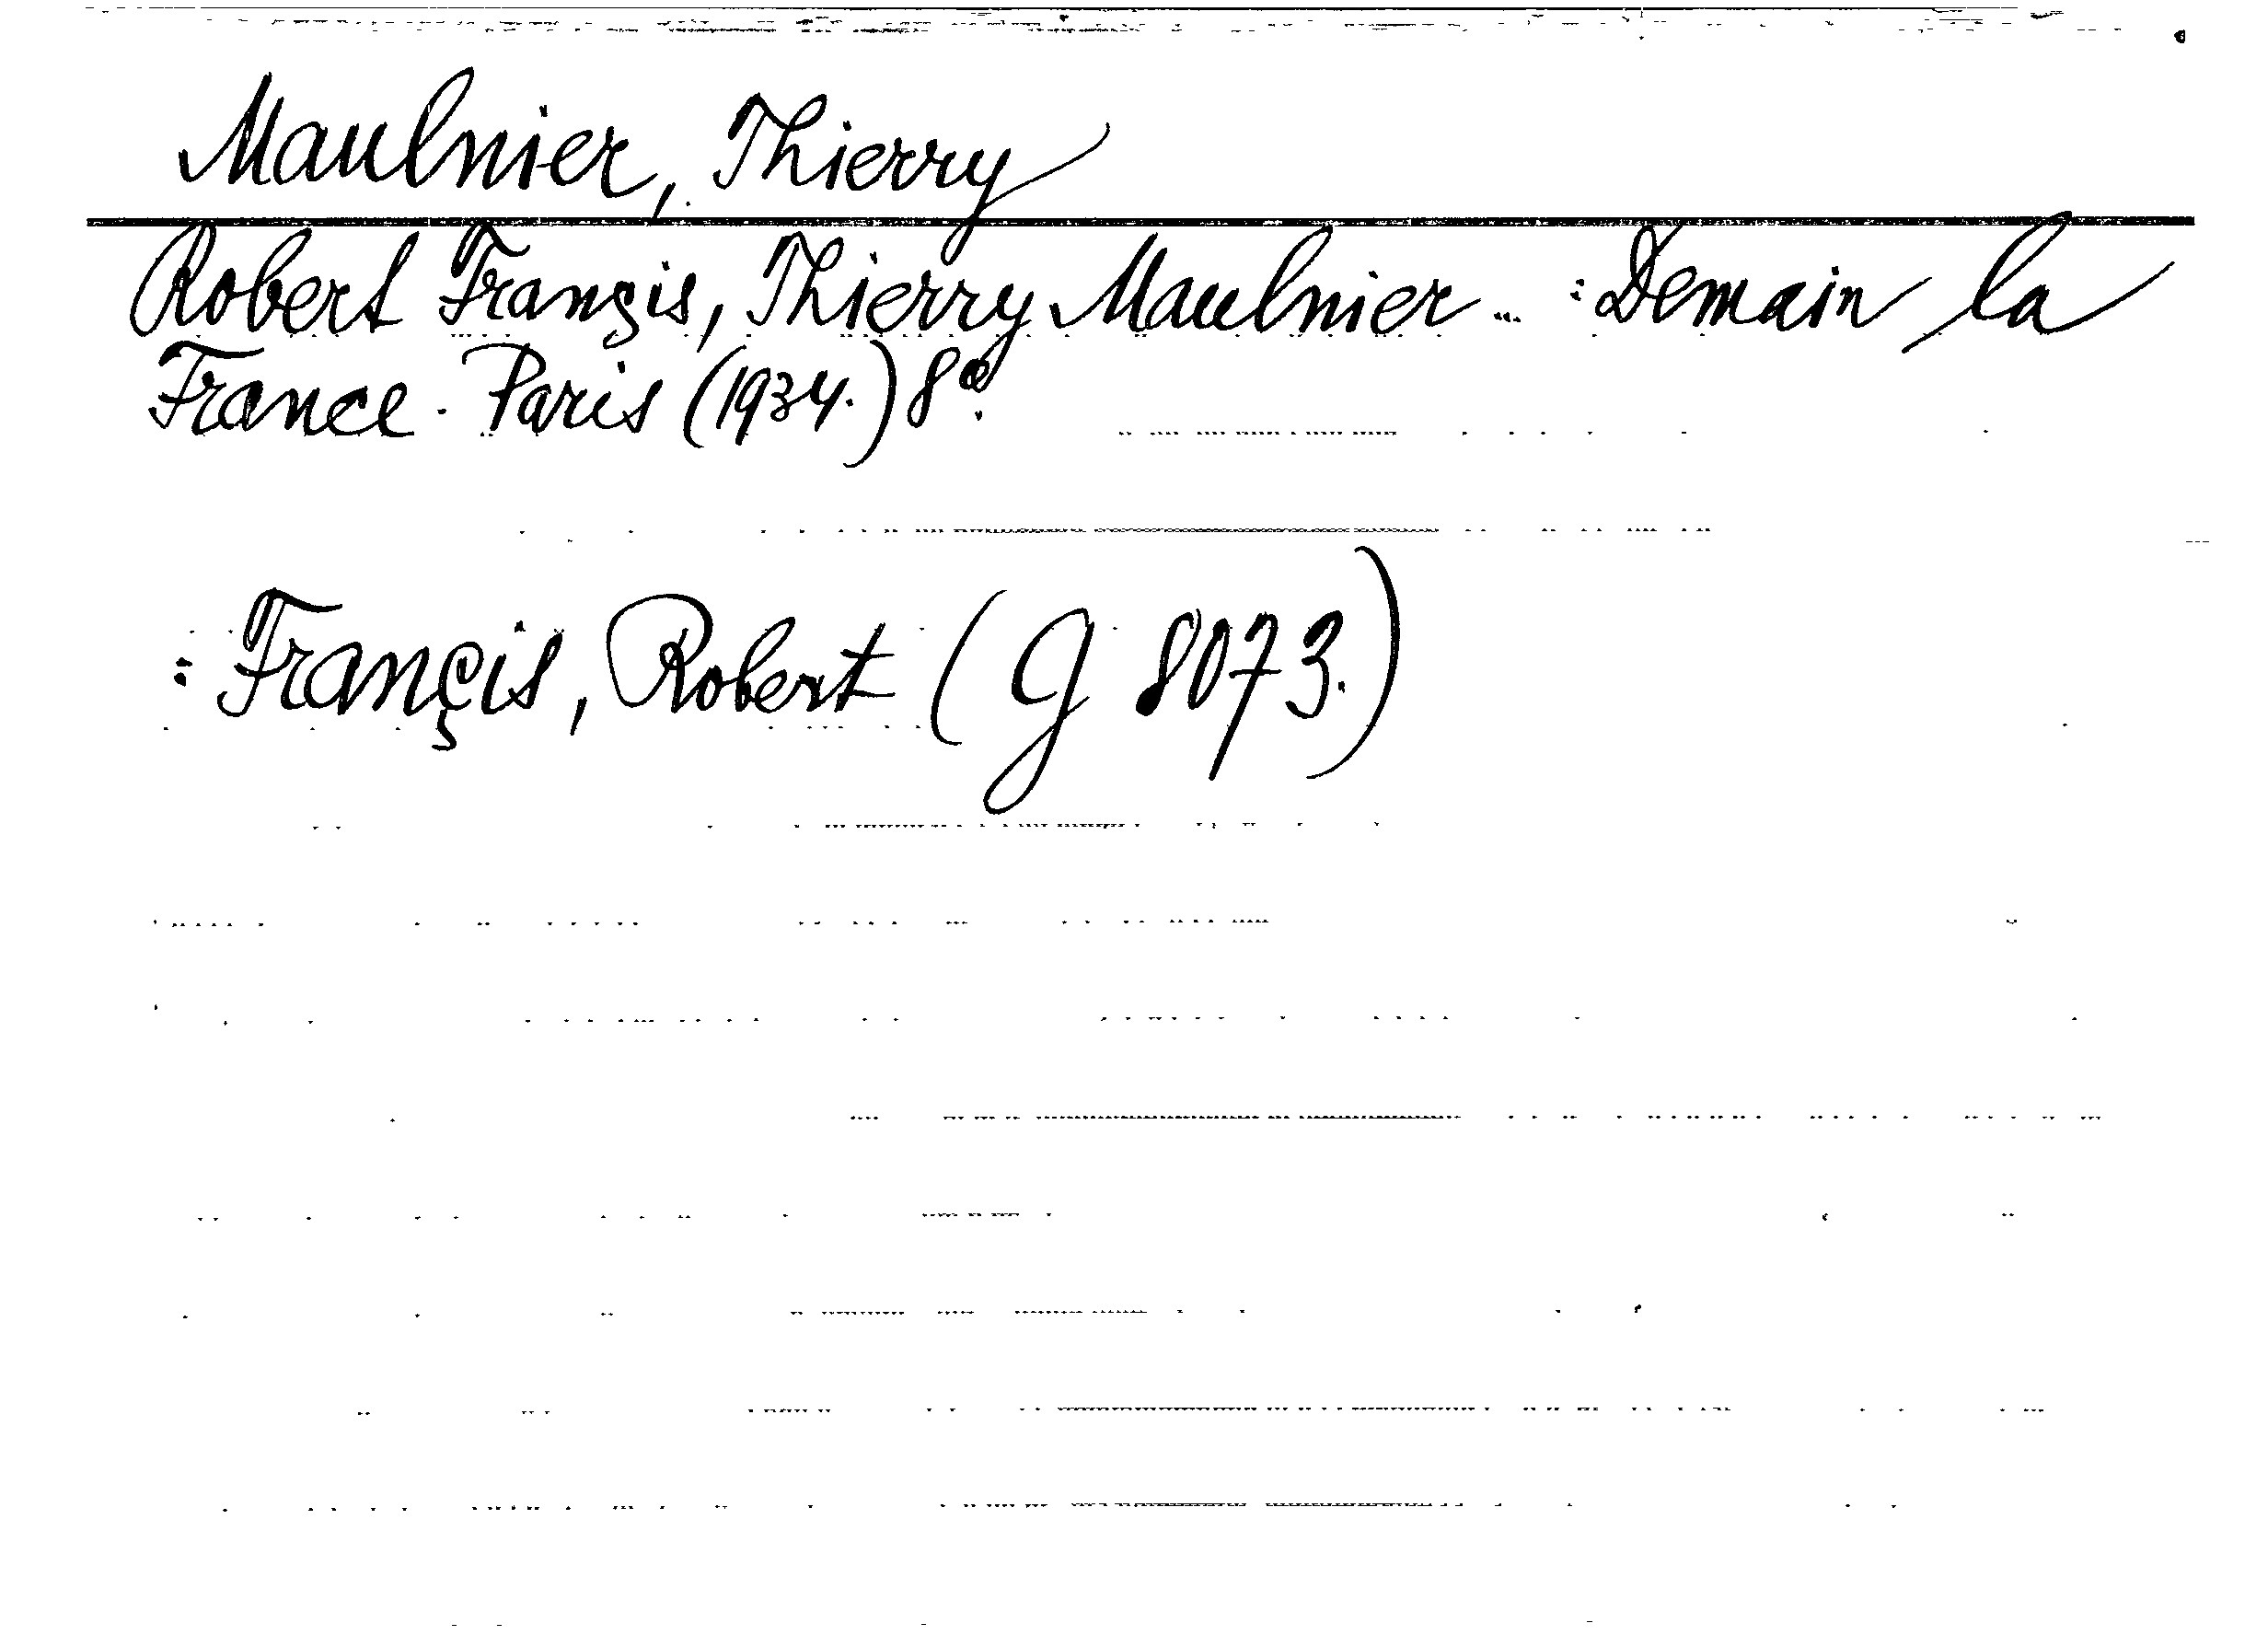 Maulnier, Thierry
Robert Françis, Thierry Maulnier... : Demain la
France. Paris (1934.) 8°.
: Françis, Robert (G 8073.)